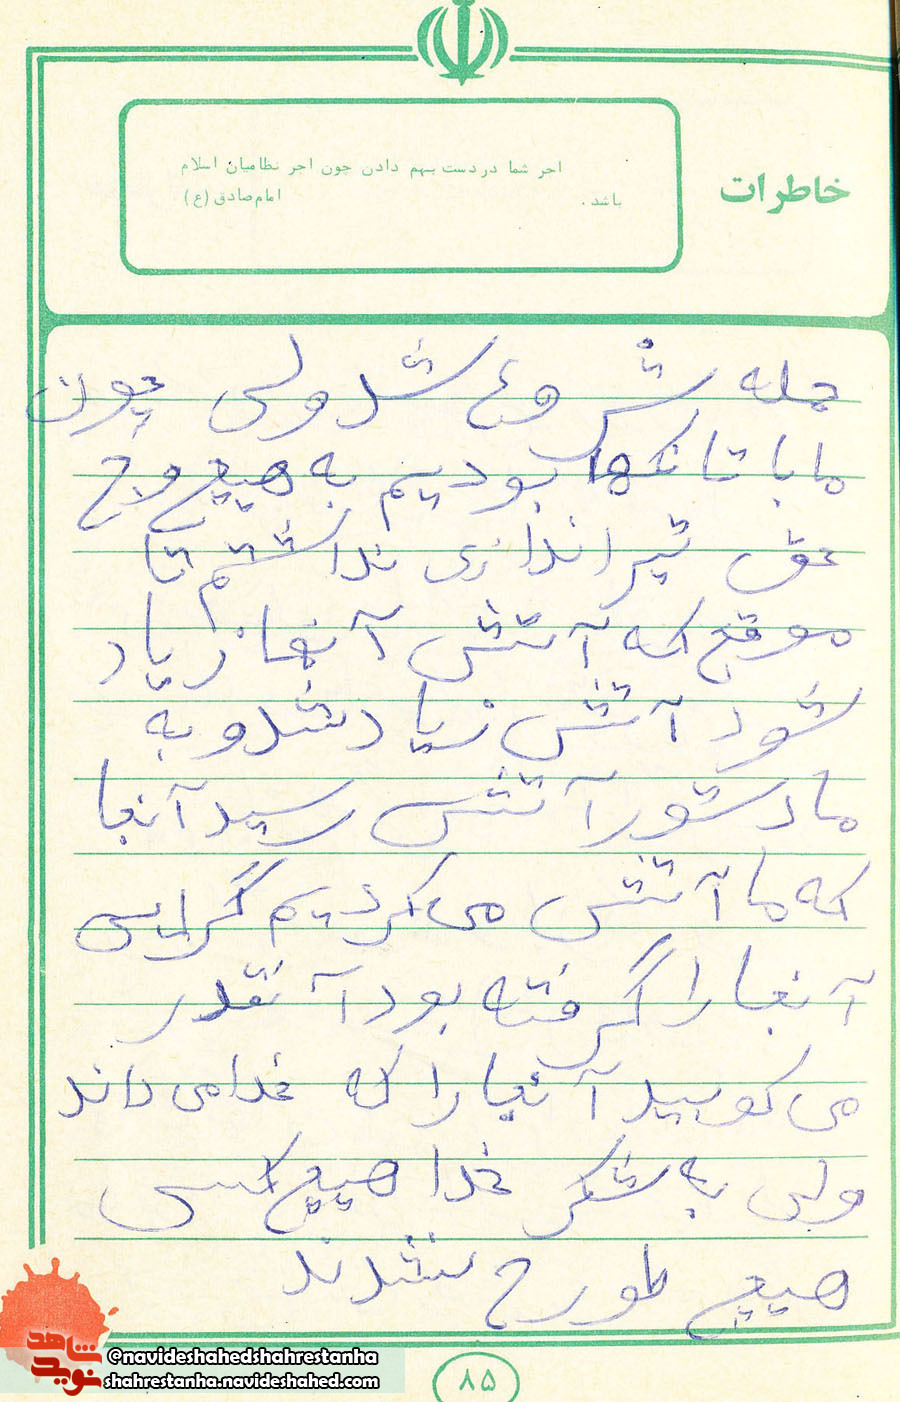 خاطرات
اجر شما در دست بهم دادن چون اجر نظامیان اسلام
باشد. امام صادق (ع)
حمله شروع شد ولی چون
ما با تانکها بودیم به هیچ وج
حق تیراندازی نداشتم تا
موقع که آتش آنها زیاد
شود آتش زیاد شد و به
ما دستور آتش رسید آنجا
که ما آتش می کردیم گرایی
آنجا را گرفته بود آنقدر
می کوبید آنجا را که خدا می داند
ولی به شکر خدا هیچ کسی
هیچ طور ح نشدند
۸۵
شاهد
نوید
@navideshahedshahrestanha
shahrestanha.navideshahed.com